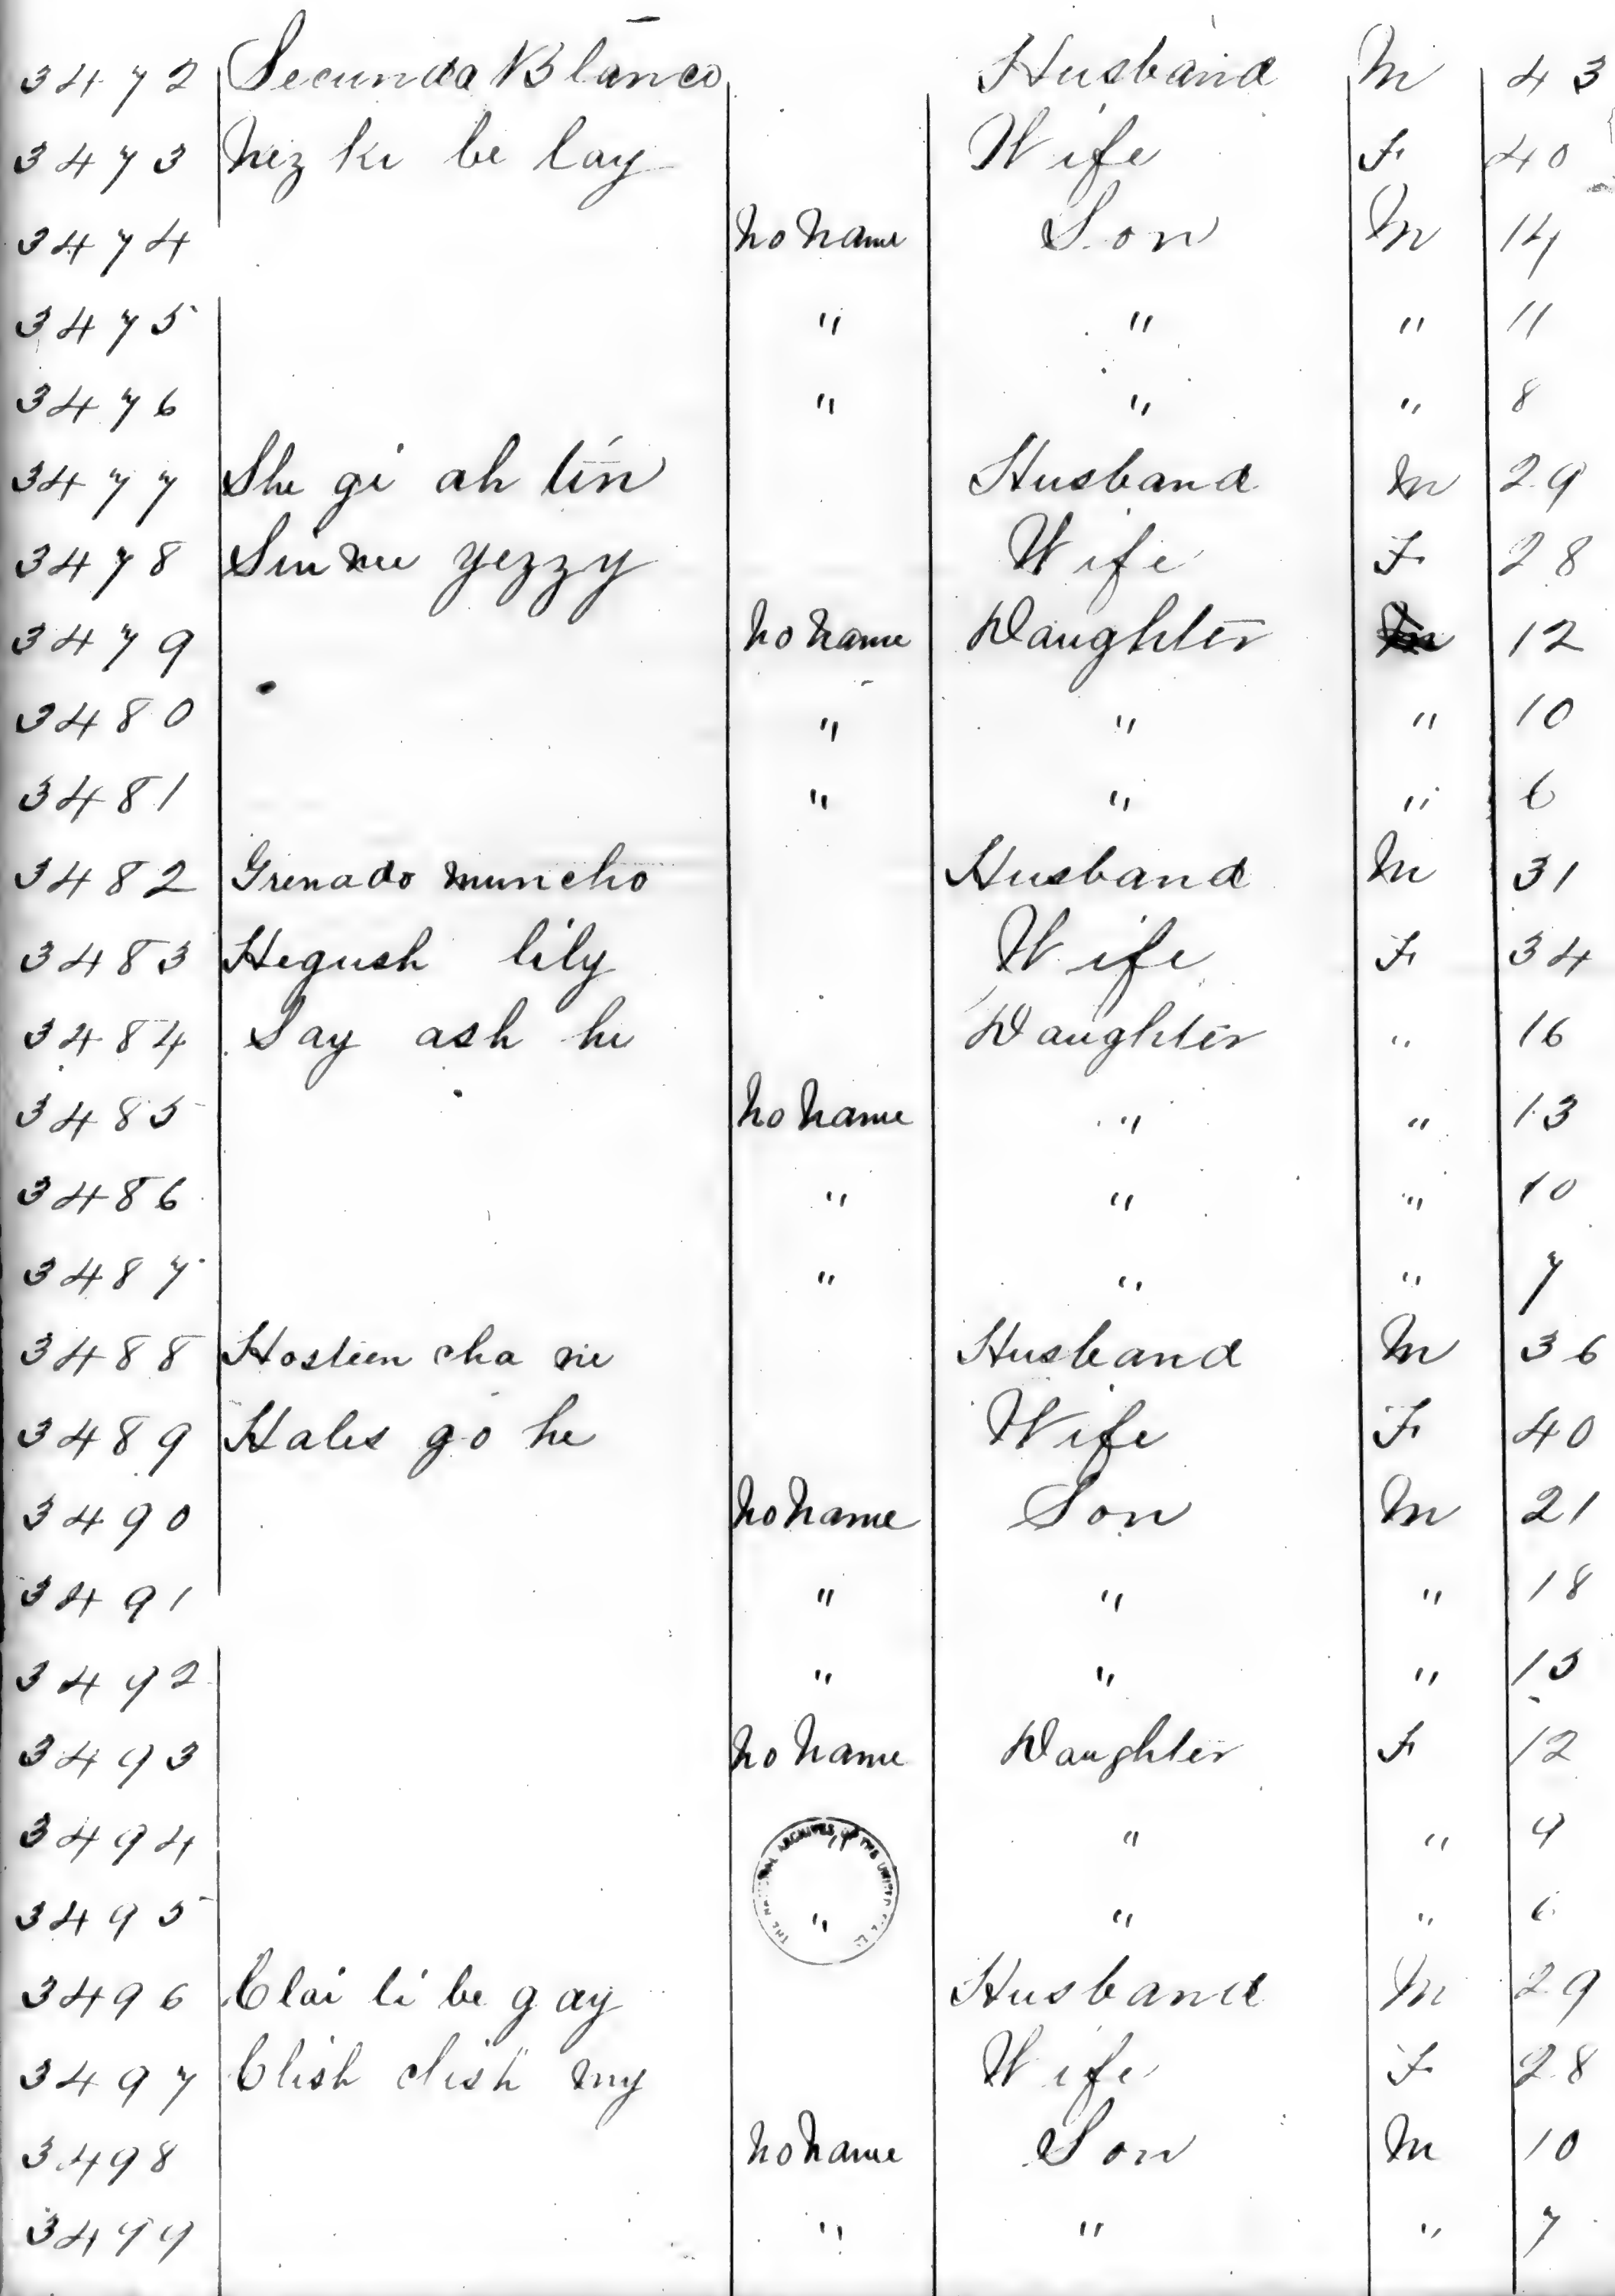 3472 Secundo Blanco Husband M 43
3473 Nez ki be lay Wife F 40
3474 No Name Son M 14
3475 " " " 11
3476 " " " 8
3477 She gi ah tin Husband M 29
3478 Sin nee yezzy Wife F 28
3479 No Name Daughter 12
3480 " " " 10
3481 " " " 6
3482 Grenado muncho Husband M 31
3483 Hegush lily Wife F 34
3484 Say ash he Daughter " 16
3485 No Name " " 13
3486 " " " 10
3487 " " " 7
3488 Hosteen cha ne Husband M 36
3489 Hales go he Wife F 40
3490 No Name Son M 21
3491 " " " 18
3492 " " " 15
3493 No Name Daughter F 12
3494 " " " 9
3495 " " " 6
THE NATIONAL ARCHIVES OF THE UNITED
3496 Clai li be gay Husband M 29
3497 Clish clish my Wife F 28
3498 No Name Son M 10
3499 " " " 7